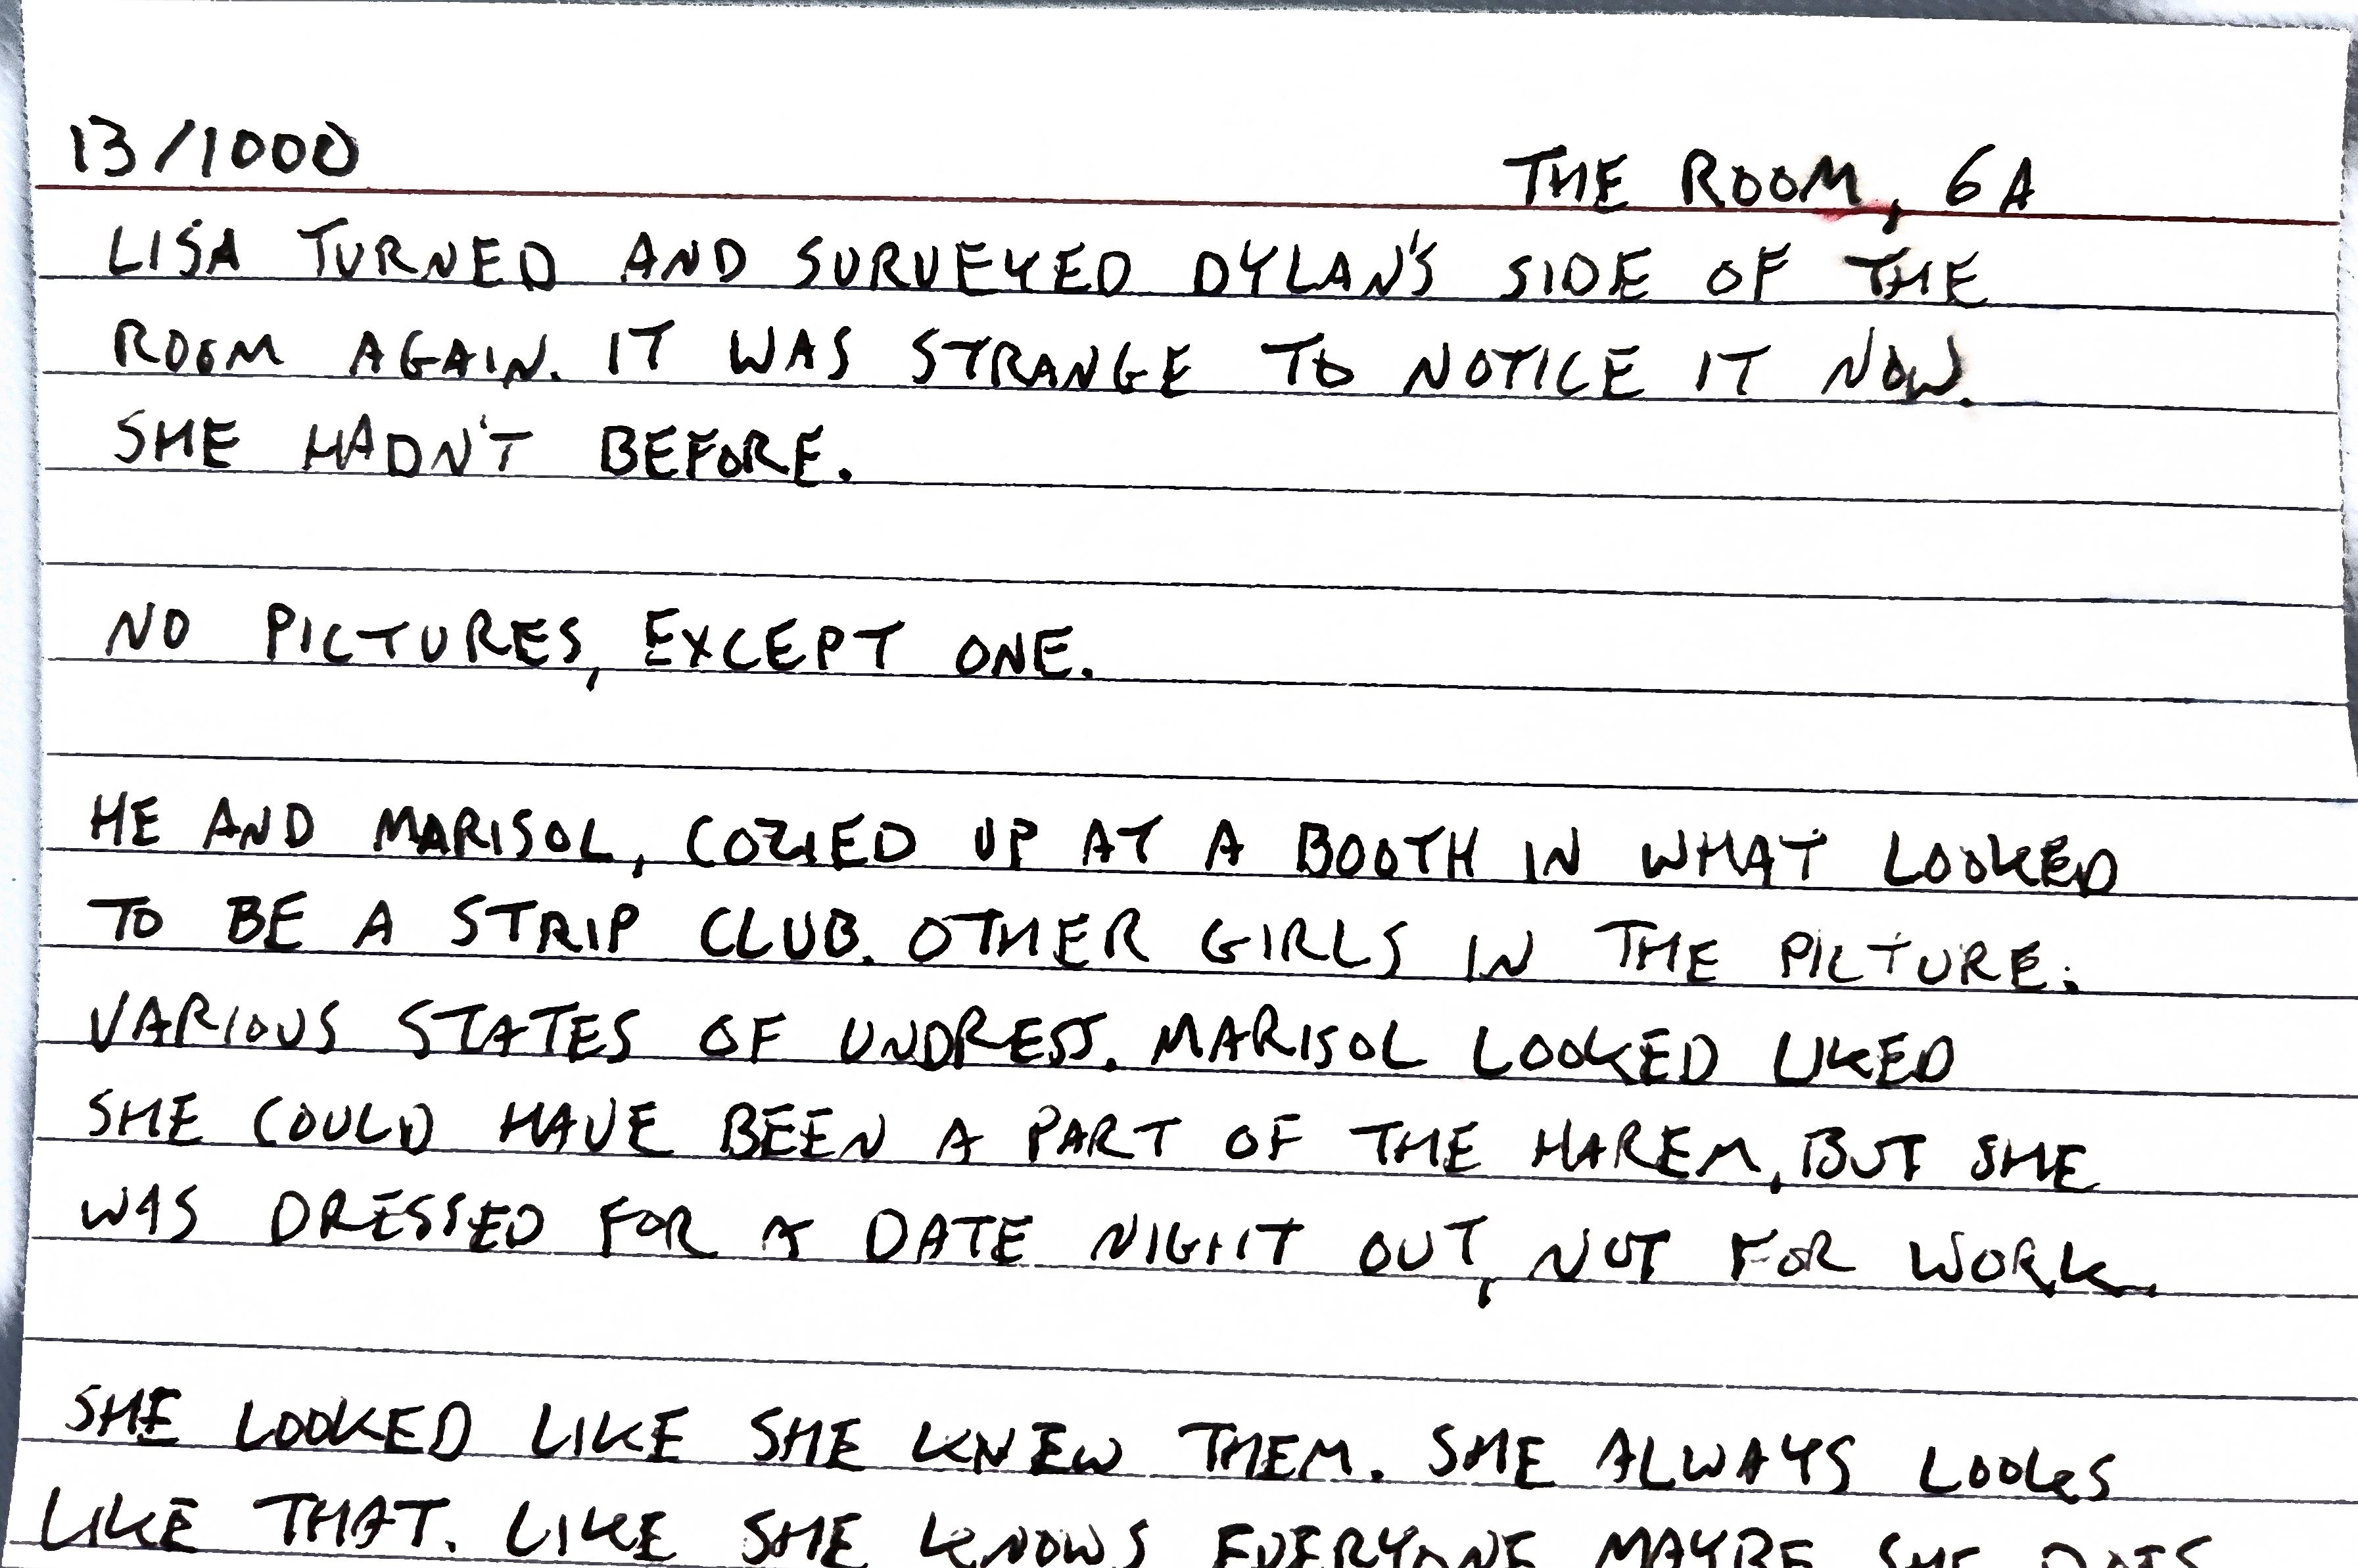 13/1000
THE ROOM, 6A
LISA TURNED AND SURVEYED DYLAN'S SIDE OF THE
ROOM AGAIN. IT WAS STRANGE TO NOTICE IT NOW.
SHE HADN'T BEFORE.
NO PICTURES, EXCEPT ONE.
HE AND MARISOL, COZIED UP AT A BOOTH IN WHAT LOOKED
TO BE A STRIP CLUB. OTHER GIRLS IN THE PICTURE.
VARIOUS STATES OF UNDRESS. MARISOL LOOKED LIKED
SHE COULD HAVE BEEN A PART OF THE HAREM, BUT SHE
WAS DRESSED FOR A DATE NIGHT OUT, NOT FOR WORK.
SHE LOOKED LIKE SHE KNEW THEM. SHE ALWAYS LOOKS
LIKE THAT. LIKE SHE KNOWS EVERYONE MAYBE SHE DOES